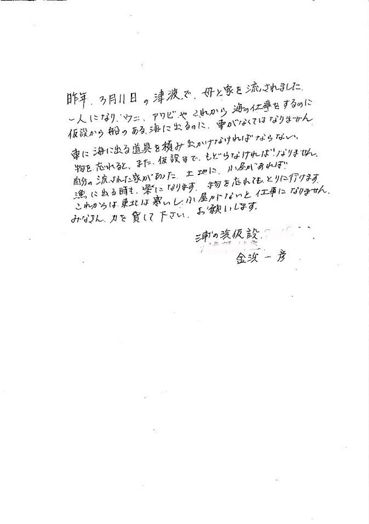 昨年、3月11日の津波で、母と家を流されました。
一人になり、ウニ、アワビや これから 海の仕事をするのに
仮設から船のある海に出るのに、車がなくてはなりません
車に海に出る道具を積み出かけなければならない。
物を忘れると、また、仮設まで、もどらなければなりません。
自分の流された家があった 土地に、小屋があれば
漁に出る時も、楽になります。物を忘れてもとりに行けます
これからは東北は寒いし、小屋がないと仕事になりません。
みなさん 力を貸して下さい。お願いします。
の浜仮設
金浜 一彦